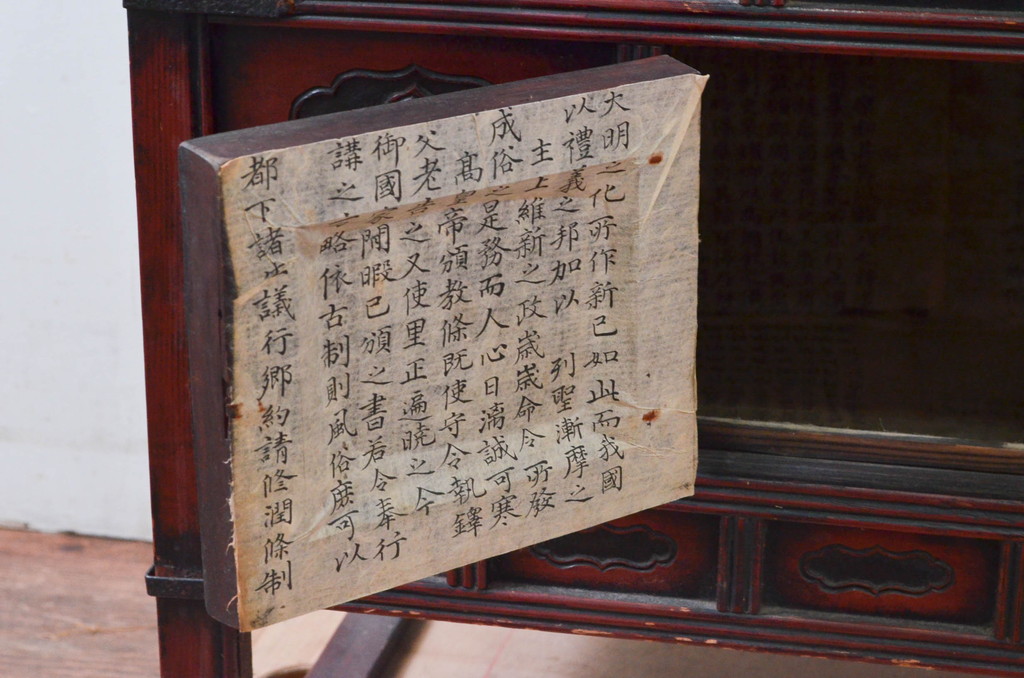 大明之化所作新已如此而我國
以禮義之邦加以 列聖漸摩之
主上維新之政歲歲命令 所發
成俗之是務而人心日漓誠可寒
高皇帝頒教條既使守令執鐸
父老 之又使里正遍曉之今
御國 閒暇已頒之書若令奉行
講之 略依古制則風俗庶可以
都下諸 議行鄉約請修潤條制